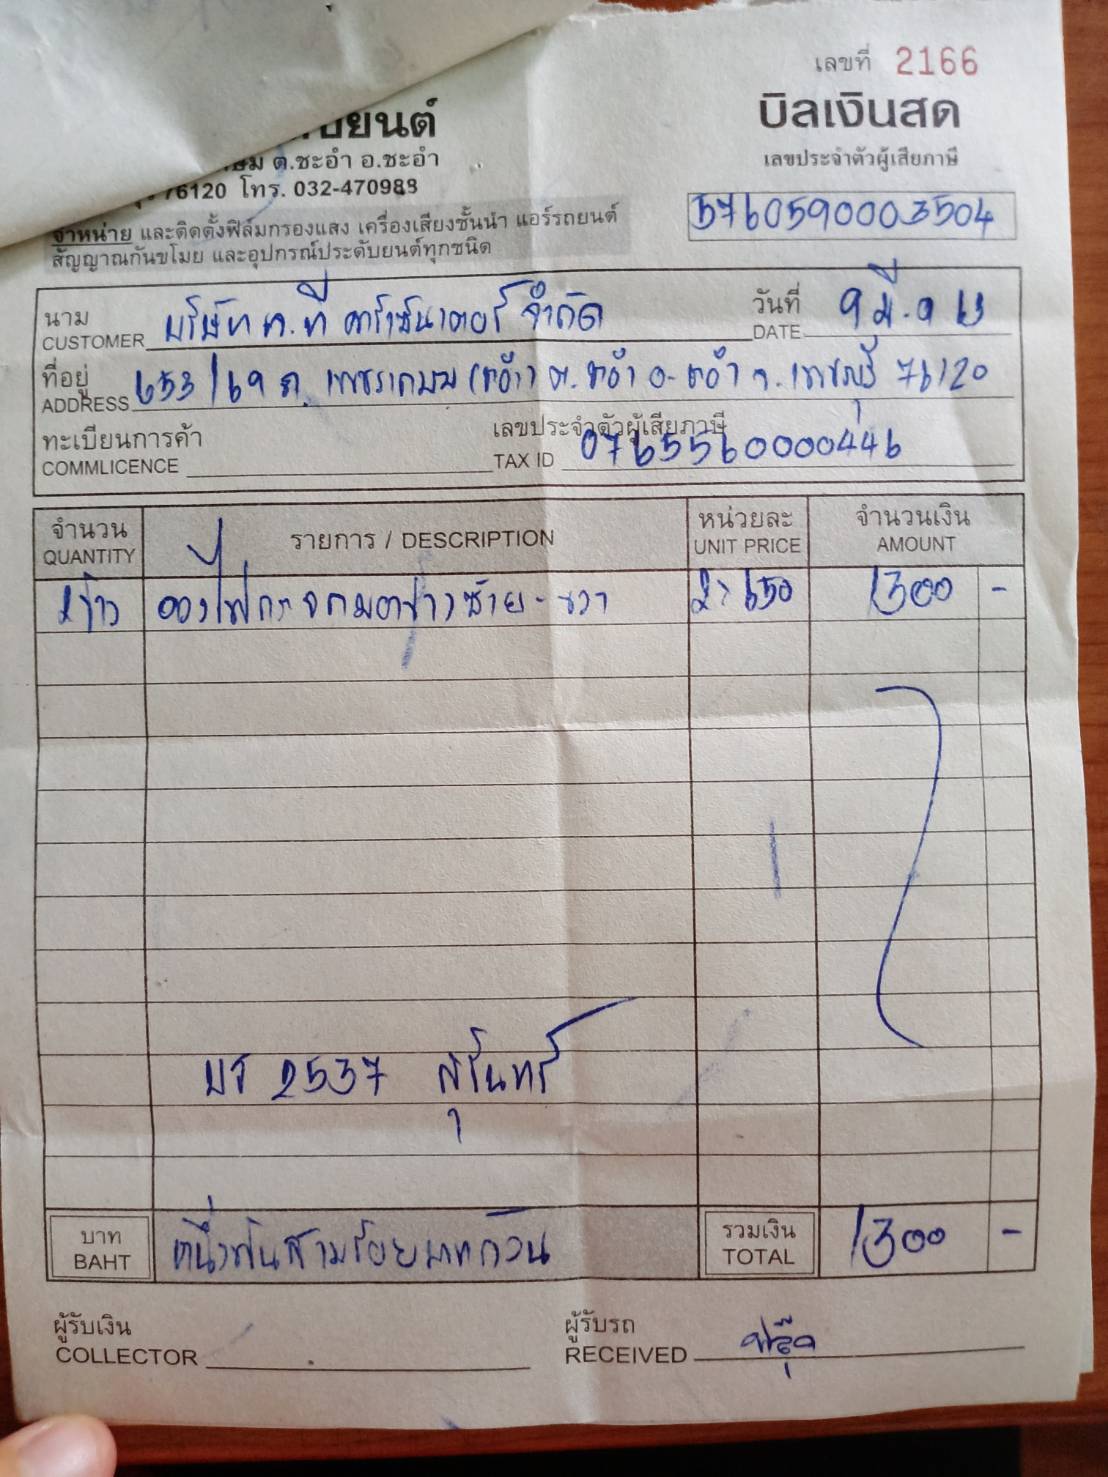 เลขที่ 2166
บิลเงินสด
ต.ชะอำ อ.ชะอำ
เลขประจำตัวผู้เสียภาษี
76120 โทร. 032-470983
5760590003504
จำหน่าย และติดตั้งฟิล์มกรองแสง เครื่องเสียงชั้นนำ แอร์รถยนต์
สัญญาณกันขโมย และอุปกรณ์ประดับยนต์ทุกชนิด
นาม บริษัท ค.ที คาร์เซ็นเตอร์ จำกัด วันที่ 9 มี.ค
CUSTOMER DATE
ที่อยู่ 653/69 ถ. เพชรเกษม ต. ชะอำ อ. ชะอำ จ. เพชรบุรี 76120
ADDRESS
ทะเบียนการค้า เลขประจำตัวผู้เสียภาษี 0765560000446
COMMLICENCE TAX ID
จำนวน รายการ / DESCRIPTION หน่วยละ จำนวนเงิน
QUANTITY UNIT PRICE AMOUNT
2 ข้าง ซ้าย - ขวา 650 1300 -
บจ 2537 สุรินทร์
บาท หนึ่งพันสามร้อยบาทถ้วน รวมเงิน 1300 -
BAHT TOTAL
ผู้รับเงิน ผู้รับรถ
COLLECTOR RECEIVED